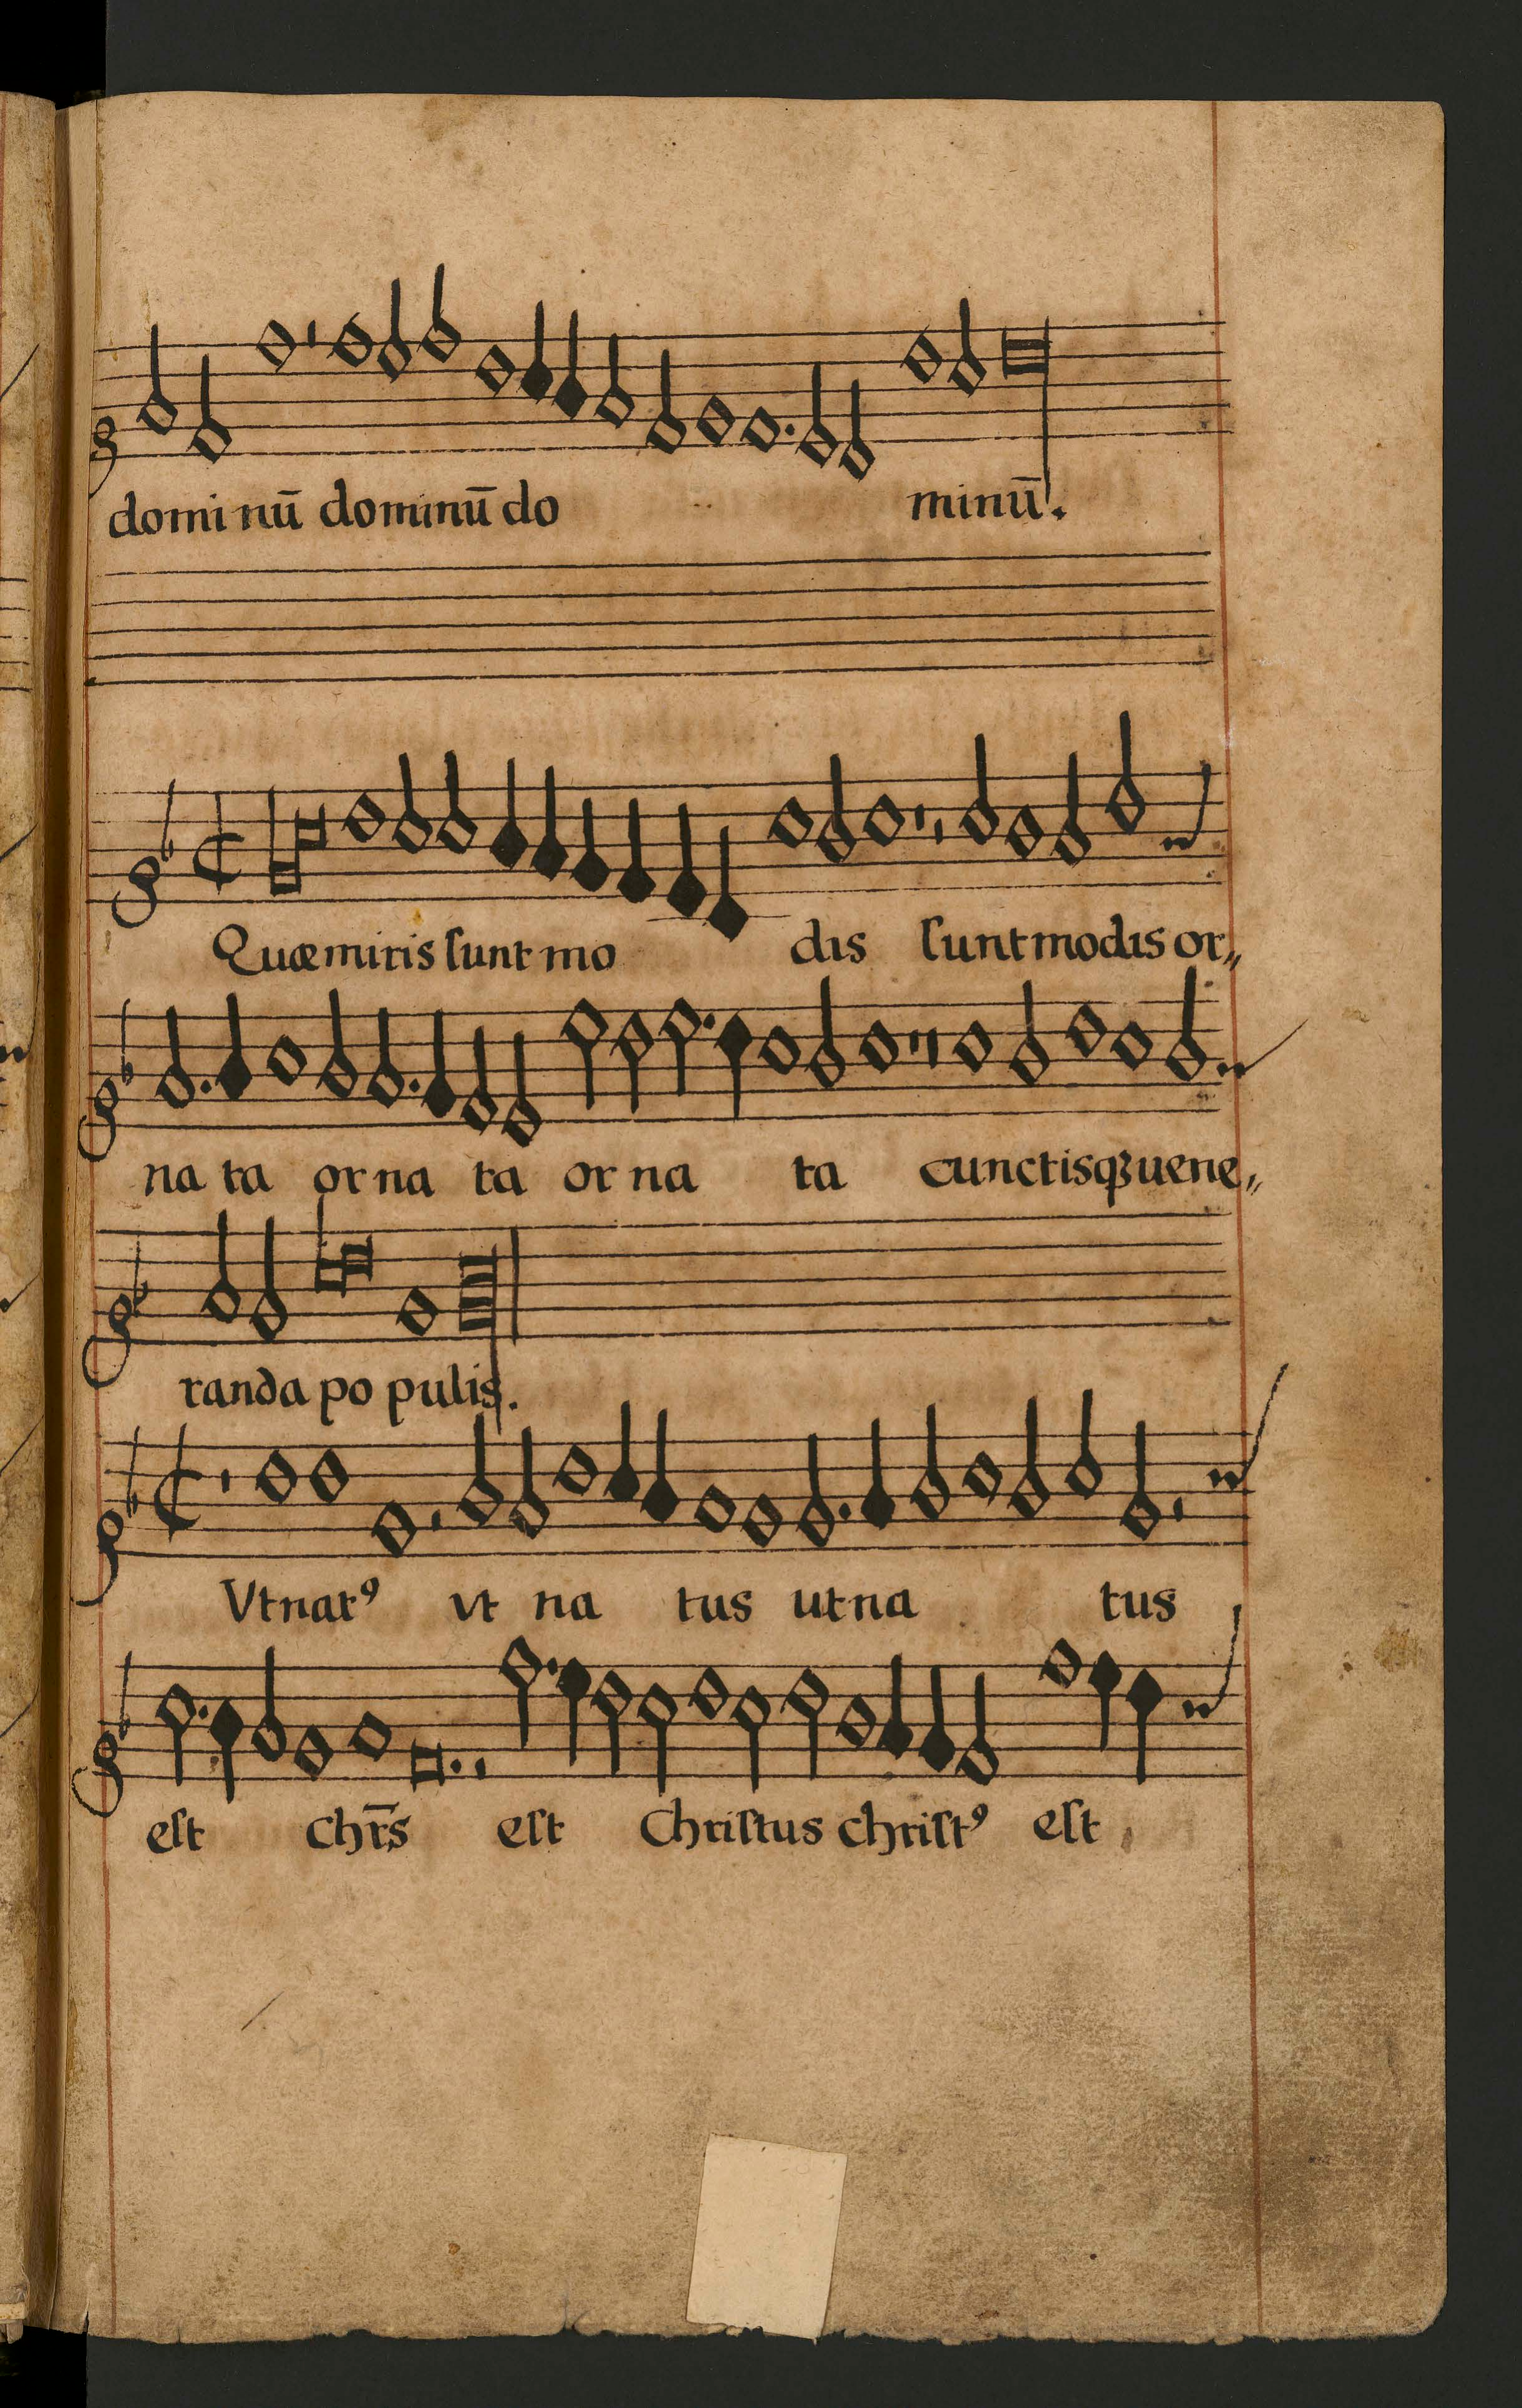 domi nū dominū do minū.
Quæ miris ſunt mo dis ſunt modis or„
na ta or na ta or na ta cunctisqꝫ uene„
randa po pulis.
Vt natꝰ vt na tus ut na tus
eſt chr̄s eſt Chriſtus chriſtꝰ eſt